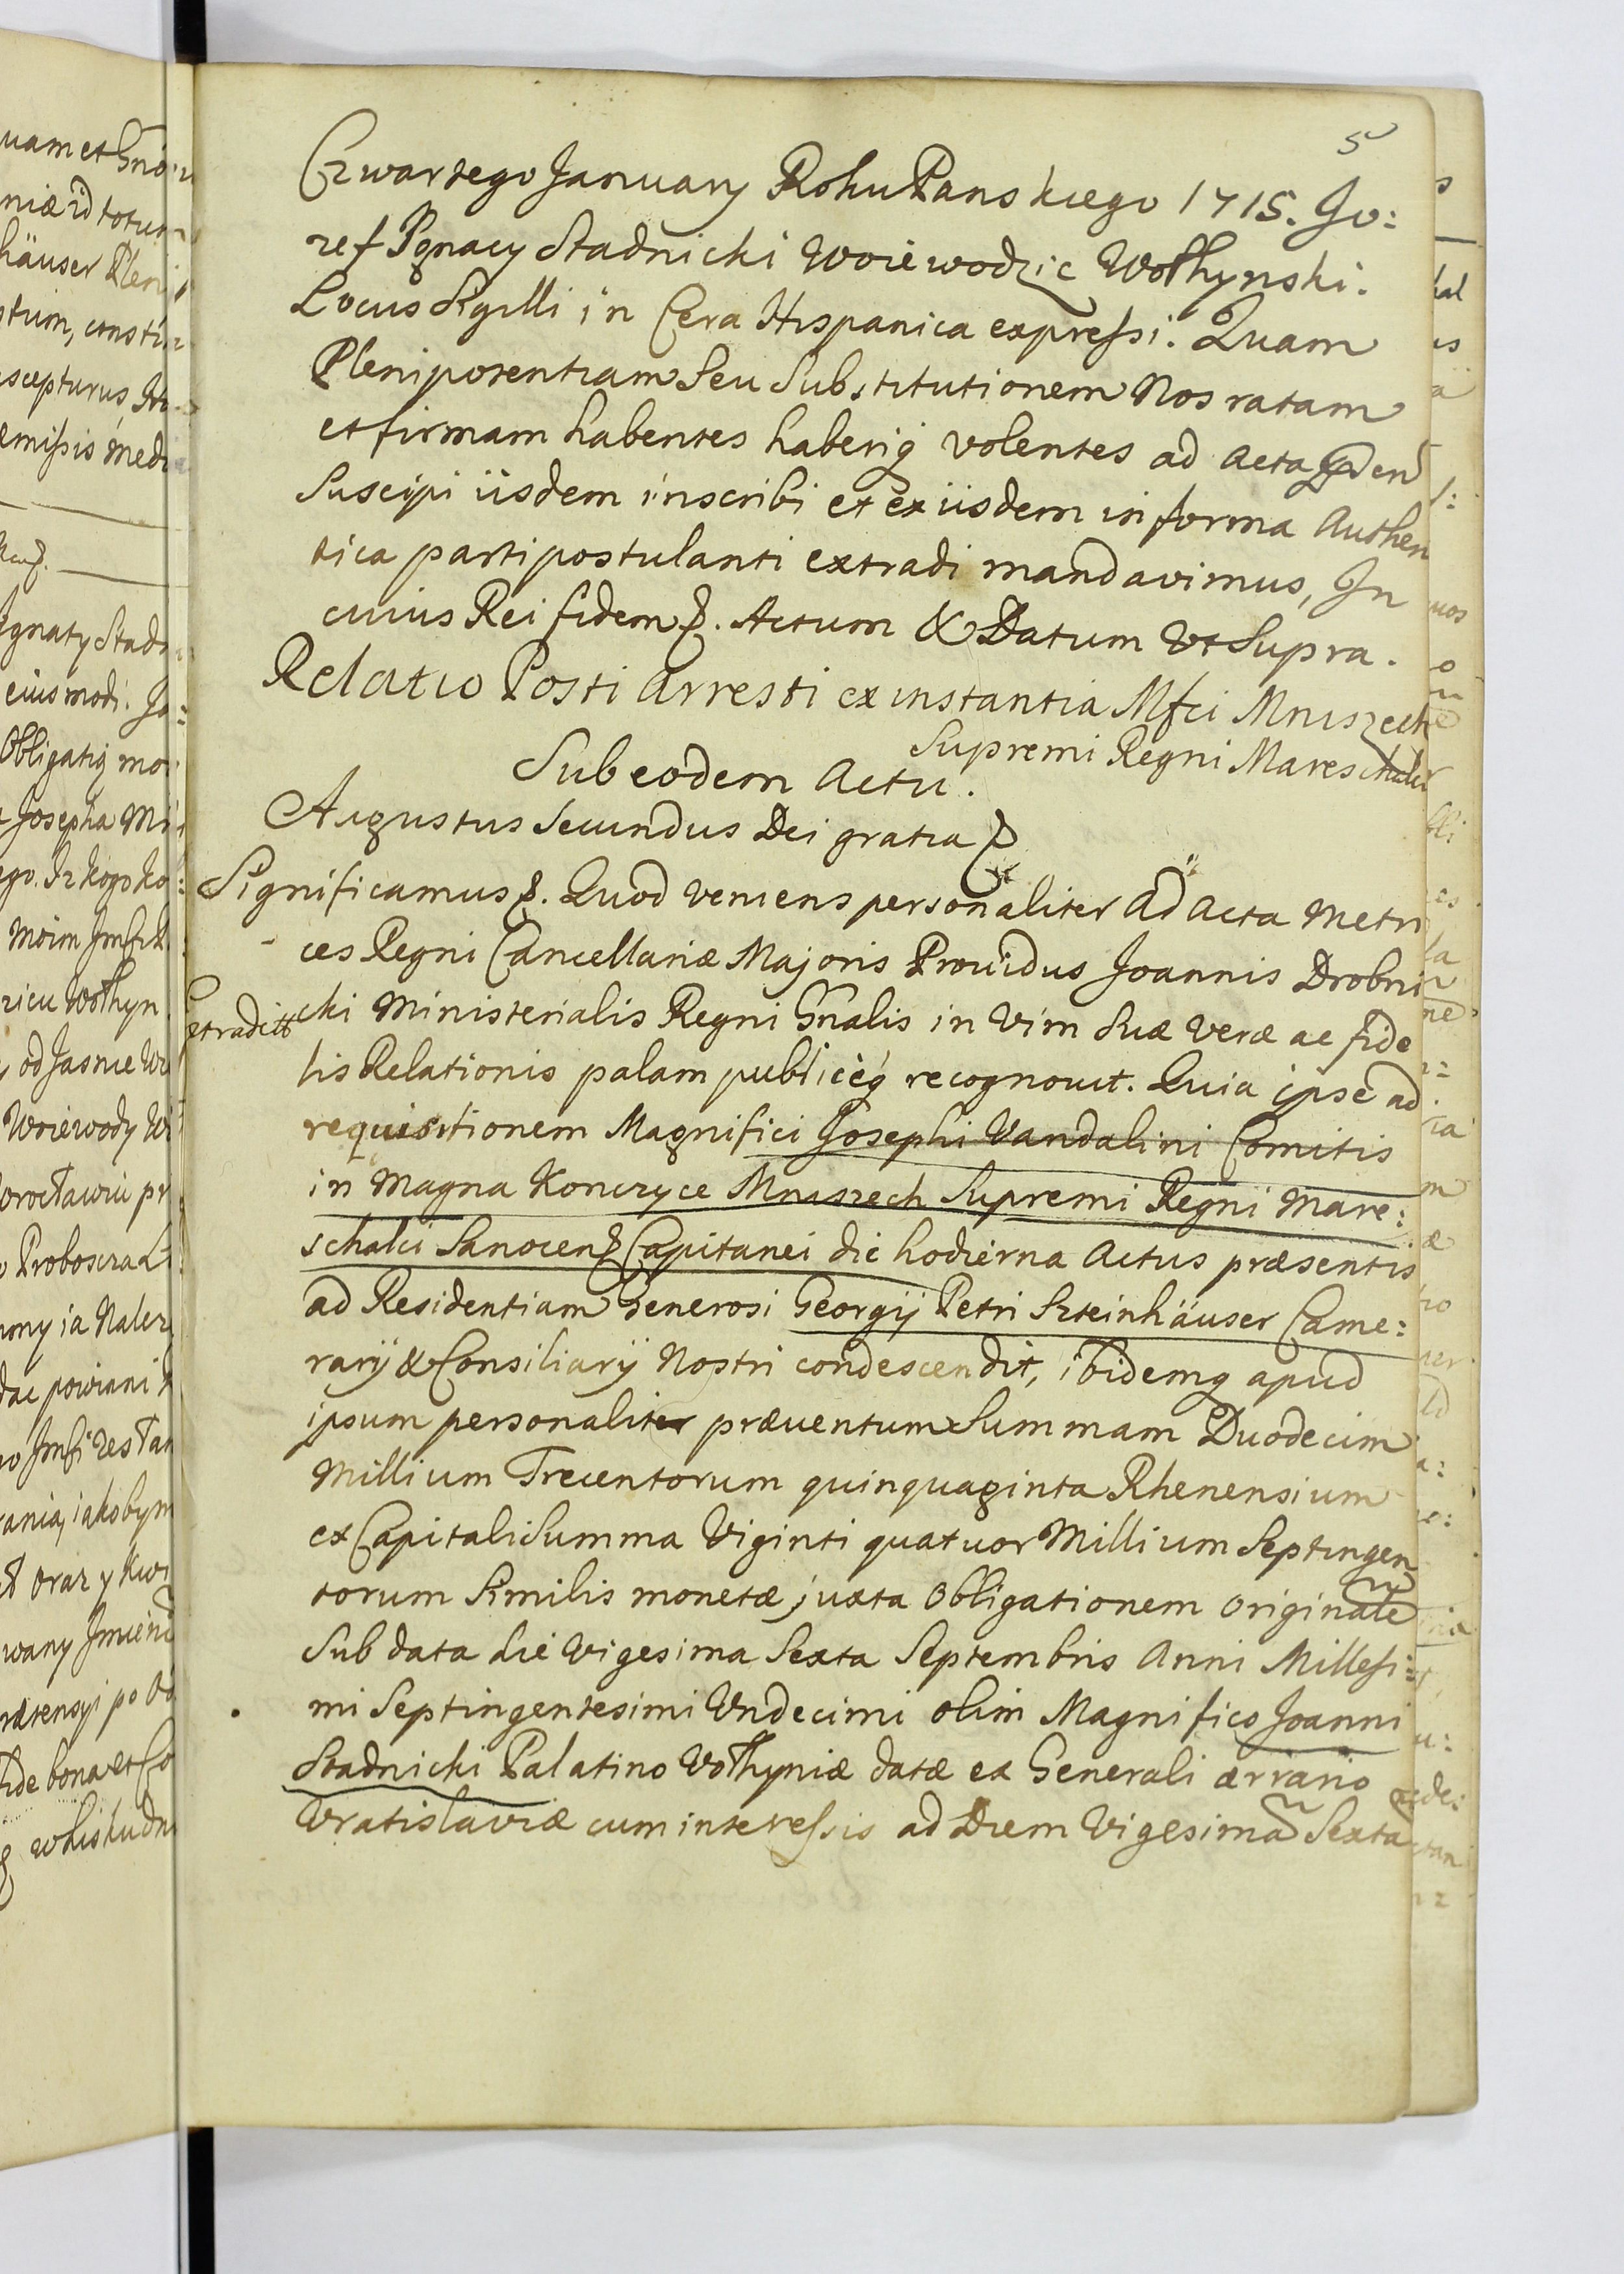 5
Czwartego January Roku Panskiego 1715. Jo:
zef Ignacy Stadnicki Woiewodzic Wołhynski.
Locus Sigilli in Cera Hispanica expressi. Quam
Plenipotentiam Seu Substitutionem Nos ratam
et firmam habentes haberiq́ volentes ad Acta
Suscipi iisdem inscribi et ex iisdem in forma Authen
tica parti postulanti extradi mandavimus, In
cuius Rei fidem &. Actum & Datum Vt Supra.
Relatio Positi Arresti ex instantia Mfci Mniszech
Supremi Regni Mareschalci
Sub eodem Actu.
Augustus Secundus Dei gratia &
Significamus &. Quod veniens personaliter Ad Acta Metri
ces Regni Cancellariæ Majoris Prouidus Joannis Drobni
extraditt
cki Ministerialis Regni Gn̄alis in Vim Suæ Veræ ac fide
lis Relationis palam publiceq́ recognouit. Quia ipse ad
requisitionem Magnifici Josephi Vandalini Comitis
in Magna Konczyce Mniszech Supremi Regni Mare:
schalci Sanocen& Capitanei die hodierna Actus præsentis
ad Residentiam Generosi Georgij Petri Szteinhäuser Came:
rarij & Consiliarij Nostri condescendit, ibidemq apud
ipsum personaliter præuentum Summam Duodecim
Millium Trecentorum quinquaginta Rhenensium
ex Capitali Summa Viginti quatuor Millium Septingen
torum Similis monetæ juxta Obligationem Originalē
Sub data die Vigesima Sexta Septembris Anni Millesi:
mi Septingentesimi Vndecimi olim Magnifico Joanni
Stadnicki Palatino Wołhyniæ datæ ex Generali ærrario
Vratislaviæ cum interessis ad Diem Vigesimā Sextā